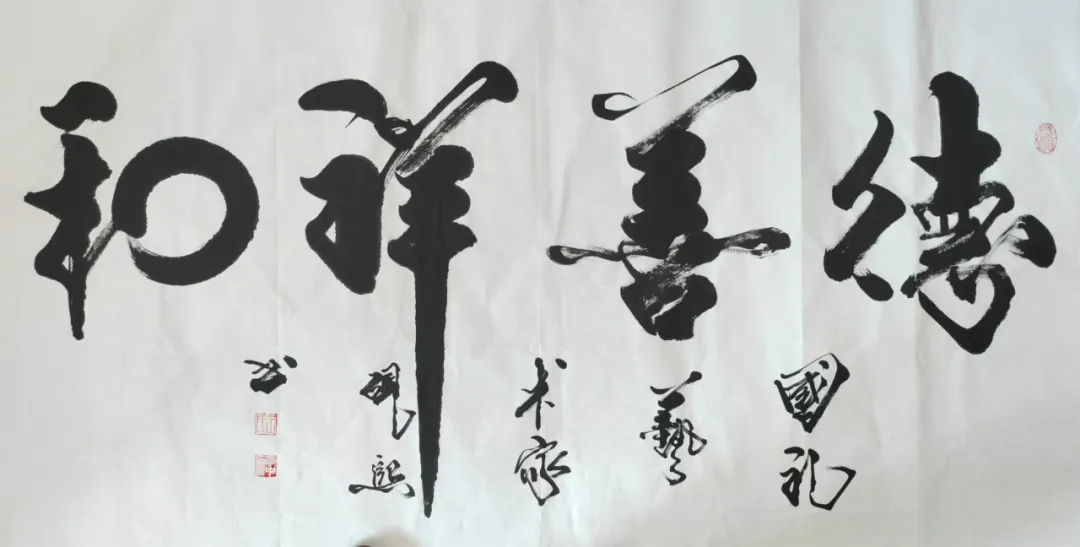 德善祥和
國礼
藝
术家
熙
书